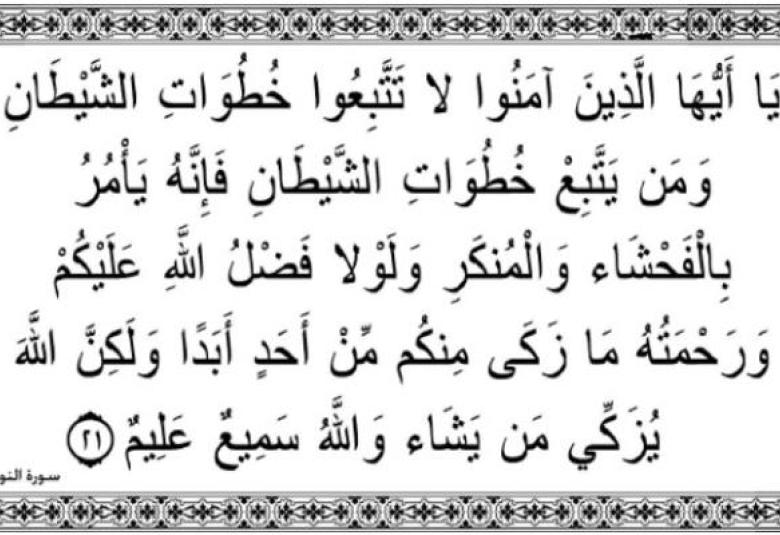 يَا أَيُّهَا الَّذِينَ آمَنُوا لا تَتَّبِعُوا خُطُوَاتِ الشَّيْطَانِ
وَمَن يَتَّبِعْ خُطُوَاتِ الشَّيْطَانِ فَإِنَّهُ يَأْمُرُ
بِالْفَحْشَاء وَالْمُنكَرِ وَلَوْلا فَضْلُ اللَّهِ عَلَيْكُمْ
وَرَحْمَتُهُ مَا زَكَى مِنكُم مِّنْ أَحَدٍ أَبَدًا وَلَكِنَّ اللَّهَ
يُزَكِّي مَن يَشَاء وَاللَّهُ سَمِيعٌ عَلِيمٌ ﴿٢١﴾
سورة النو